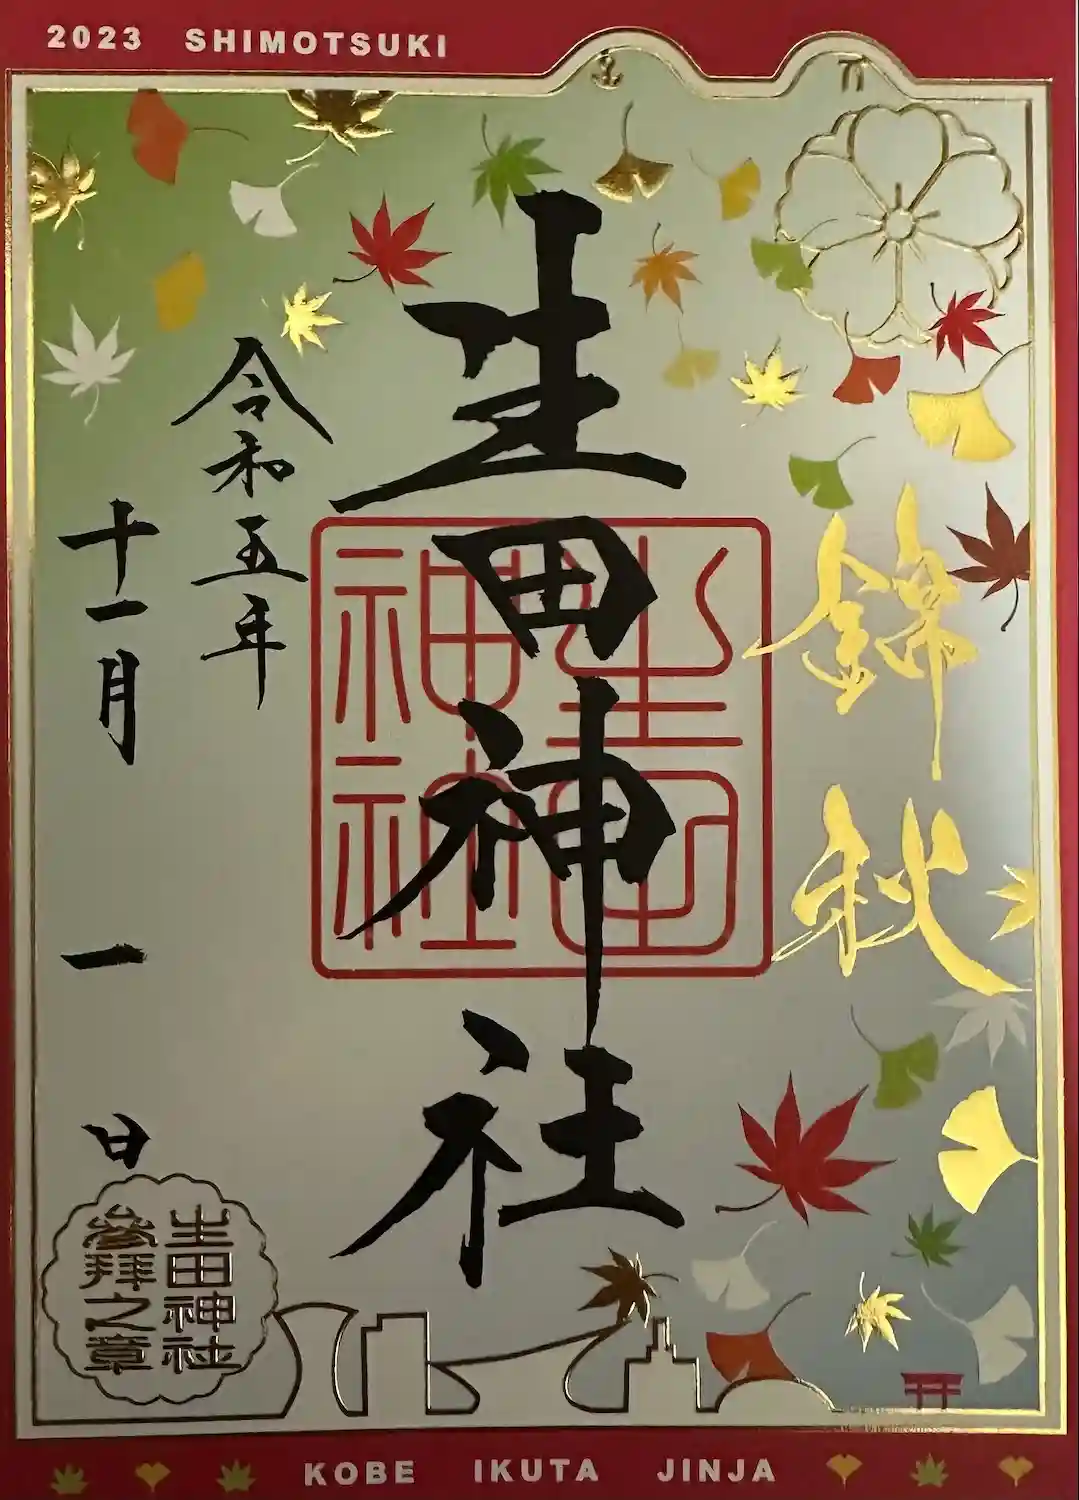 2023 SHIMOTSUKI
錦秋
生田神社
令和五年
十一月一日
生田神社
生田神社
参拜之章
KOBE IKUTA JINJA